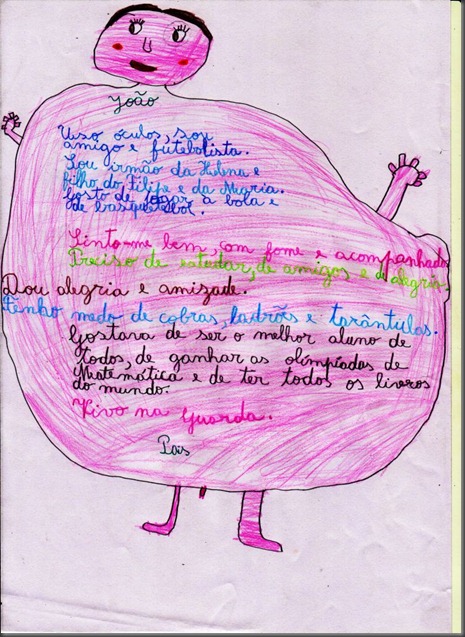 João
Uso óculos, sou
amigo e futebolista.
Sou irmão da Helena e
filho do Filipe e da Maria.
Gosto de jogar à bola e
de basquetebol.
Sinto-me bem, com fome e acompanhado
Preciso de estudar, de amigos e de alegria.
Dou alegria e amizade.
Tenho medo de cobras, ladrões e tarântulas.
Gostava de ser o melhor aluno de
todos, de ganhar as olimpíadas de
Matemática e de ter todos os livros
do mundo.
Vivo na Guarda.
Pais